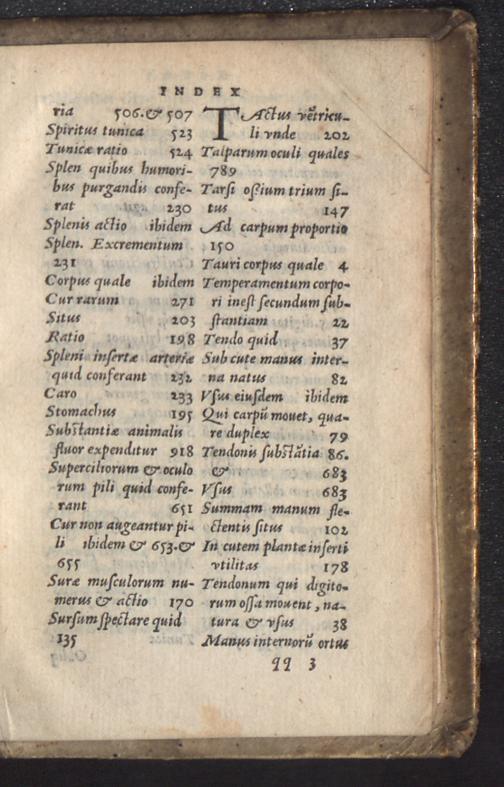 INDEX
ria 506.& 507
Spiritus tunica 523
Tunicæ ratio 524
Splen quibus humori-
bus purgandis confe-
rat 230
Splenis actio ibidem
Splen. Excrementum
231
Corpus quale ibidem
Cur rarum 271
Situs 203
Ratio 198
Spleni insertæ arteriæ
quid conferant 232
Caro 233
Stomachus 195
Substantiæ animalis
fluor expenditur 918
Superciliorum & oculo
rum pili quid confe-
rant 651
Cur non augeantur pi-
li ibidem & 653.&
655
Suræ musculorum nu-
merus & actio 170
Sursum spectare quid
135
TActus vẽtricu-
li vnde 202
Talparum oculi quales
789
Tarsi oßium trium si-
tus 147
Ad carpum proportio
150
Tauri corpus quale 4
Temperamentum corpo-
ri inest secundum sub-
stantiam 22
Tendo quid 37
Sub cute manus inter-
na natus 82
Vsus eiusdem ibidem
Qui carpũ mouet, qua-
re duplex 79
Tendonis substãtia 86.
& 683
Vsus 683
Summam manum fle-
ctentis situs 102
In cutem plantæ inserti
vtilitas 178
Tendonum qui digito-
rum ossa mouent, na-
tura & vsus 38
Manus internorũ ortus
qq 3